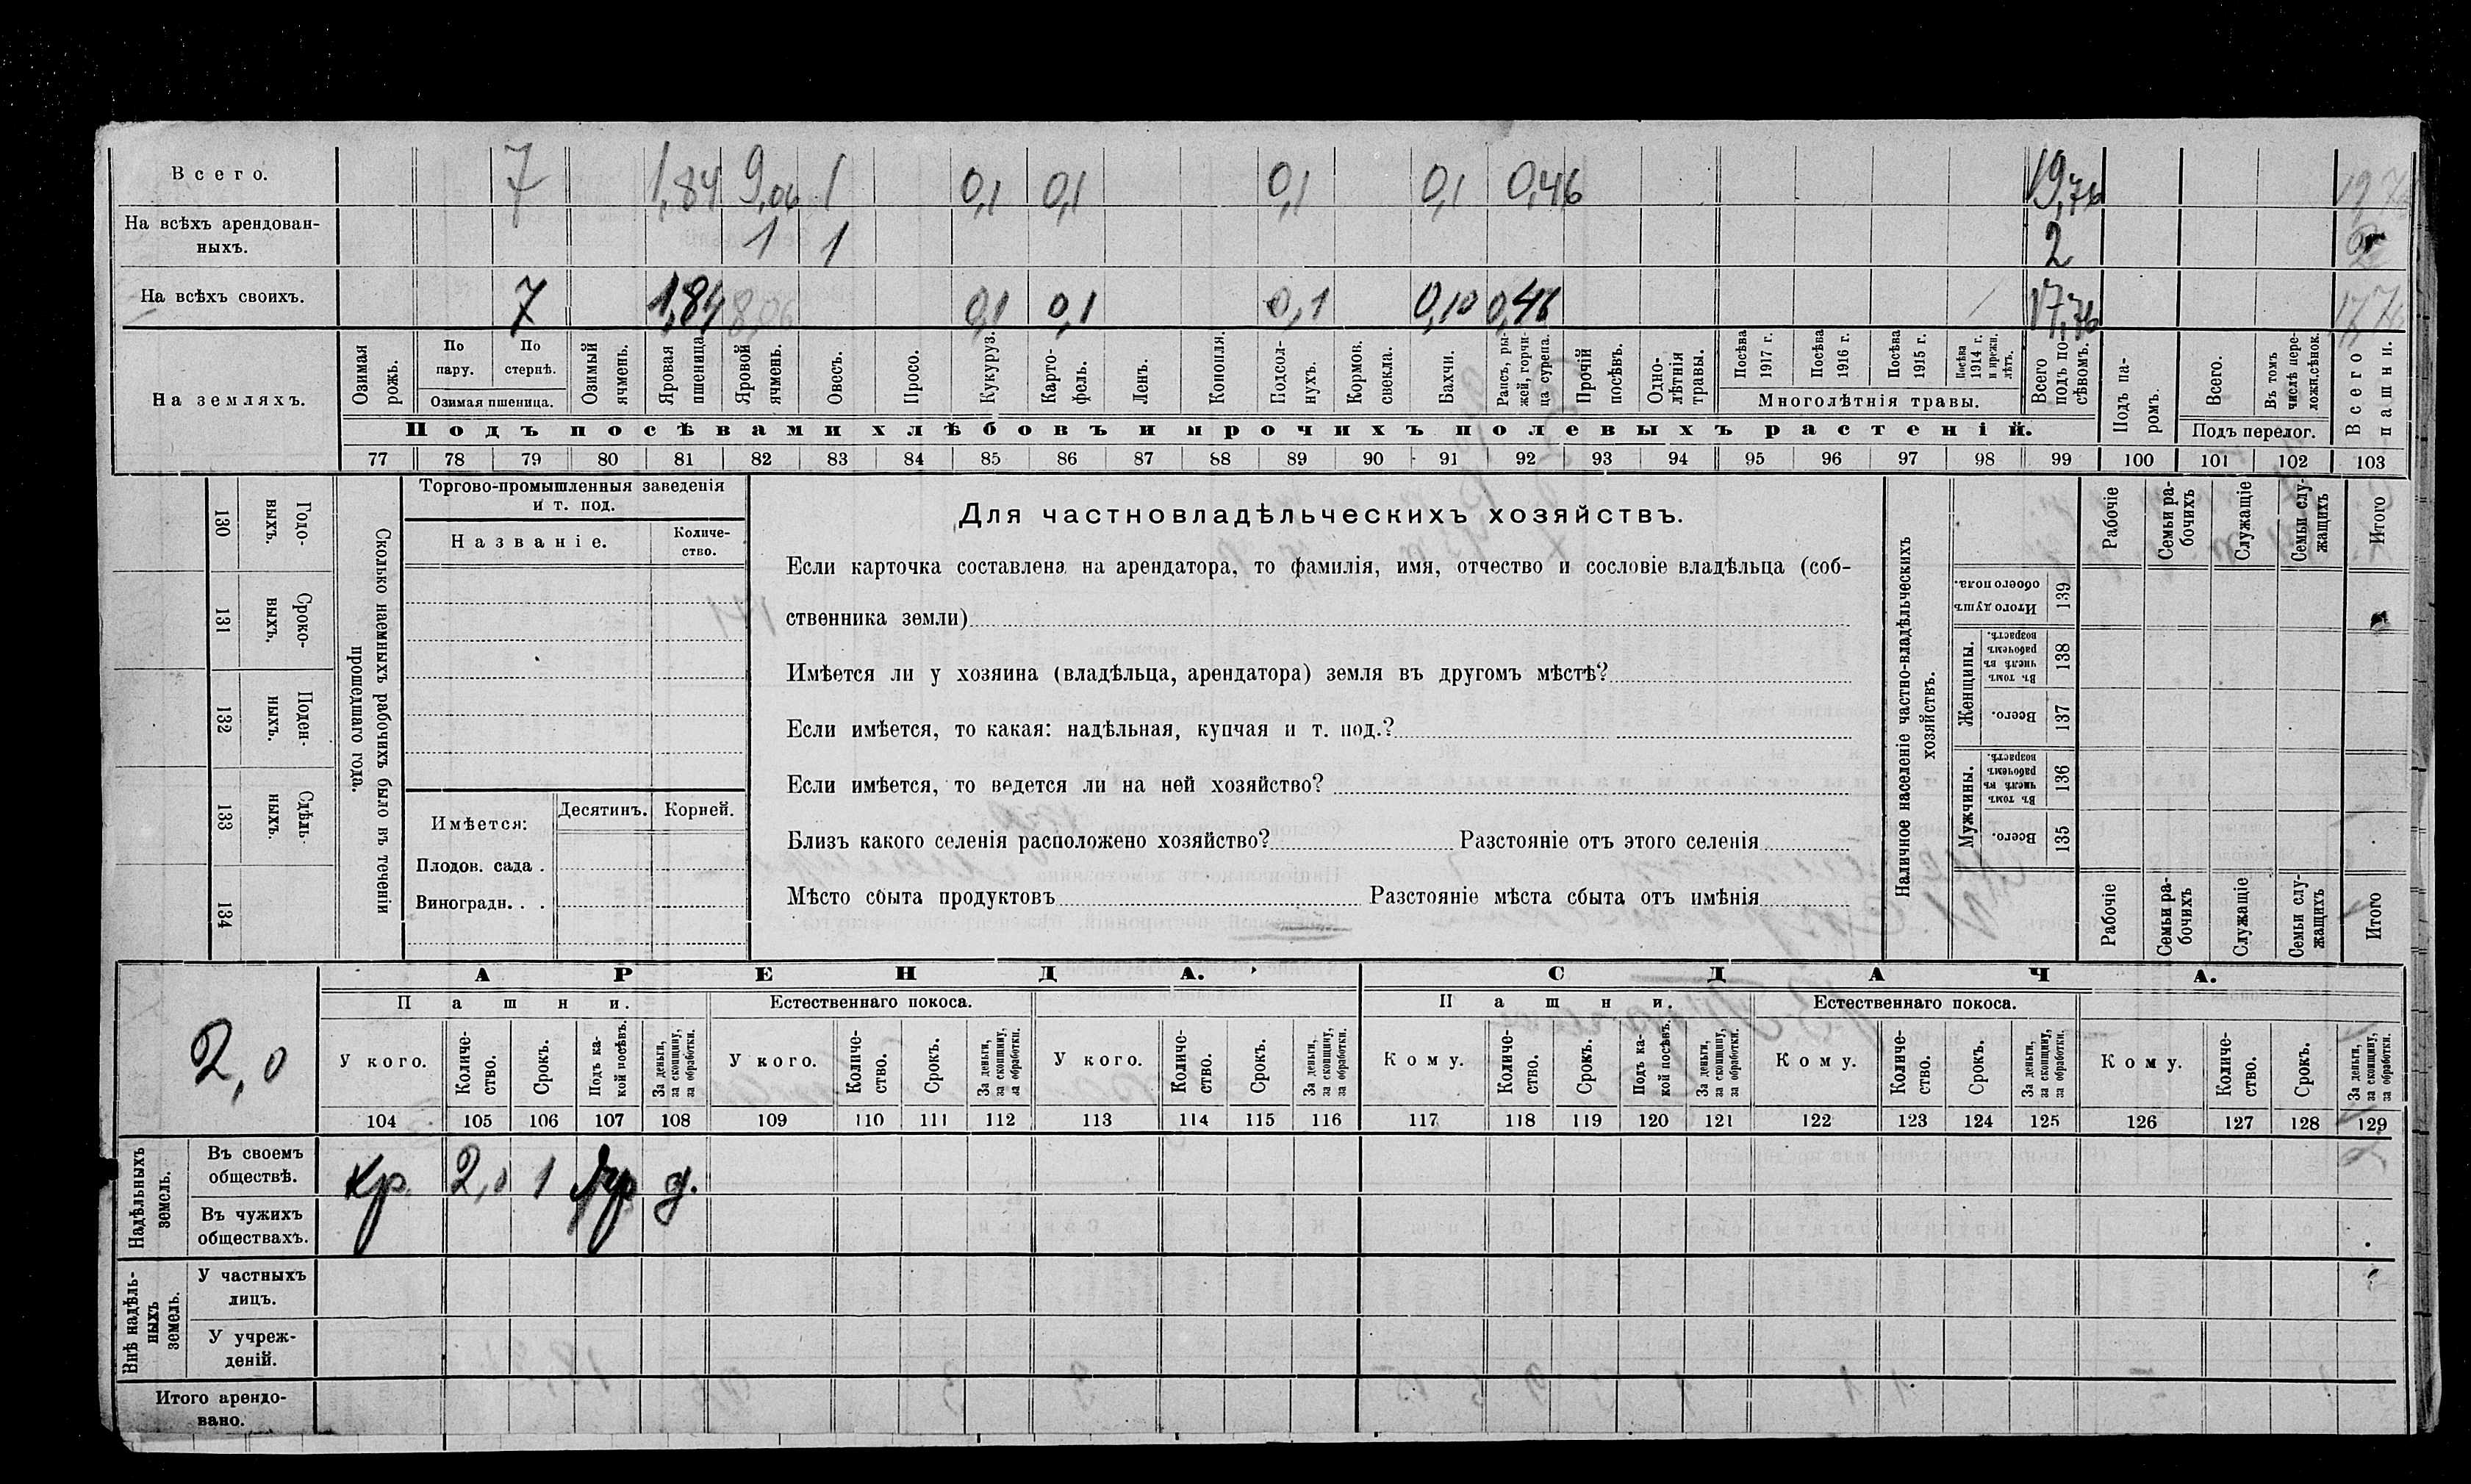 Всего. 7 1,84 9,06 1 0,1 0,1 0,1 0,1 0,46 19,76 19,76
На всѣхъ арендован-
ныхъ. 1 1 2 2
На всѣхъ своихъ. 7 1,84 8,06 0,1 0,1 0,1 0,10 0,46 17,76 17,76
На земляхъ.
Озимая рожь.
По пару.
По стернѣ.
Озимая пшеница.
Озимый ячмень.
Яровая пшеница
Яровой ячмень.
Овесъ.
Просо.
Кукуруз.
Карто-
фель.
Ленъ.
Конопля.
Подсол-
нухъ.
Кормов. свекла.
Бахчи.
Рапсъ, ры-
жей, горчи-
ца сурепа.
Прочій посѣвъ.
Одно-
лѣтнія травы.
Посѣва 1917 г.
Посѣва 1916 г.
Посѣва 1915 г.
Посѣва 1914 г. и прежн. лѣтъ.
Многолѣтнія травы.
Всего подъ по-
сѣвомъ.
Подъ па-
ромъ.
Всего.
Въ томъ числѣ пере-
ложн.сѣнок.
Подъ перелог.
Всего пашни.
Подъ посѣвами хлѣбовъ и прочихъ полевыхъ растеній.
77 78 79 80 81 82 83 84 85 86 87 88 89 90 91 92 93 94 95 96 97 98 99 100 101 102 103
130 Годо-
выхъ.
131 Сроко-
выхъ.
132 Поден-
ныхъ.
133 Сдѣль-
ныхъ.
134
Сколько наемныхъ рабочихъ было въ теченіи
прошедшаго года.
Торгово-промышленныя заведенія
и т. под.
Названіе.
Количе-
ство.
Имѣется: Десятинъ. Корней.
Плодов. сада .
Виноградн. . .
Для частновладѣльческихъ хозяйствъ.
Если карточка составлена на арендатора, то фамилія, имя, отчество и сословіе владѣльца (соб-
ственника земли)
Имѣется ли у хозяина (владѣльца, арендатора) земля въ другомъ мѣстѣ?
Если имѣется, то какая: надѣльная, купчая и т. под.?
Если имѣется, то ведется ли на ней хозяйство?
Близъ какого селенія расположено хозяйство? Разстояніе отъ этого селенія
Мѣсто сбыта продуктовъ Разстояніе мѣста сбыта отъ имѣнія
Наличное населеніе частно-владѣльческихъ
хозяйствъ.
Рабочіе
Семьи ра-
бочихъ
Служащіе
Семьи слу-
жащихъ
Итого
Итого душъ обоего пола. 139
Женщины.
Въ томъ числѣ въ рабочемъ возрастѣ. 138
Всего. 137
Мужчины.
Въ томъ числѣ въ рабочемъ возрастѣ. 136
Всего. 135
Рабочіе
Семьи ра-
бочихъ
Служащіе
Семьи слу-
жащихъ
Итого
2,0
АРЕНДА. СДАЧА.
Пашни. Естественнаго покоса. Пашни. Естественнаго покоса.
У кого.
Количе-
ство.
Срокъ.
Подъ ка-
кой посѣвъ.
За деньги, за скопщину, за обработки.
У кого.
Количе-
ство.
Срокъ.
За деньги, за скопщину, за обработки.
У кого.
Количе-
ство.
Срокъ.
За деньги, за скопщину, за обработки.
Кому.
Количе-
ство.
Срокъ.
Подъ ка-
кой посѣвъ.
За деньги, за скопщину, за обработки.
Кому.
Количе-
ство.
Срокъ.
За деньги, за скопщину, за обработки.
Кому.
Количе-
ство.
Срокъ.
За деньги, за скопщину, за обработки.
104 105 106 107 108 109 110 111 112 113 114 115 116 117 118 119 120 121 122 123 124 125 126 127 128 129
Надѣльныхъ
земель.
Въ своемъ
обществѣ. кр. 2,0 1 д.
Въ чужихъ
обществахъ.
Внѣ надѣль-
ныхъ
земель.
У частныхъ
лицъ.
У учреж-
деній.
Итого арендо-
вано.